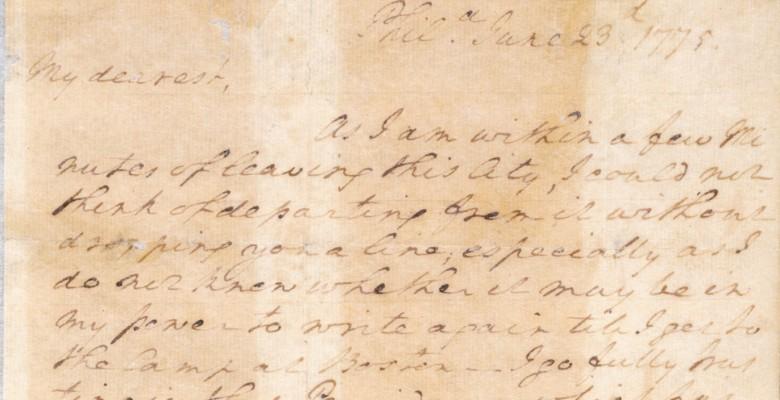 Phila. June 23d 1775.
My dearest,
As I am within a few Mi
nutes of leaving this City, I could not
think of departing from it without
dropping you a line; especially as I
do not know whether it may be in
my power to write again till I get to
the Camp at Boston — I go fully trus
ting in that Providence, which has